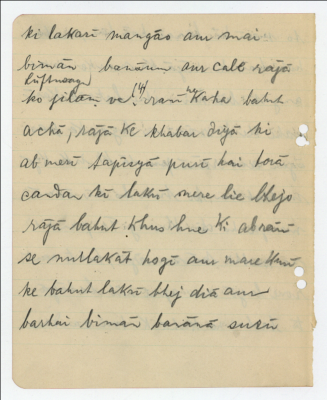 ki lakarī mangāo aur mai
bimān banāun aur cale rājā
Luftwagen
ko jilāne ve. (4) rānī ne kaha bahut
achā, rājā ke khabar diyā ki
ab merī tapisyā purī hai torā
candan kī lakrī mere lie bhejo
rājā bahut khus hue ki ab rānī
se mullakāt hogī aur mare khusī
ke bahut lakrī bhej diā aur
barhai bimān banānā surū